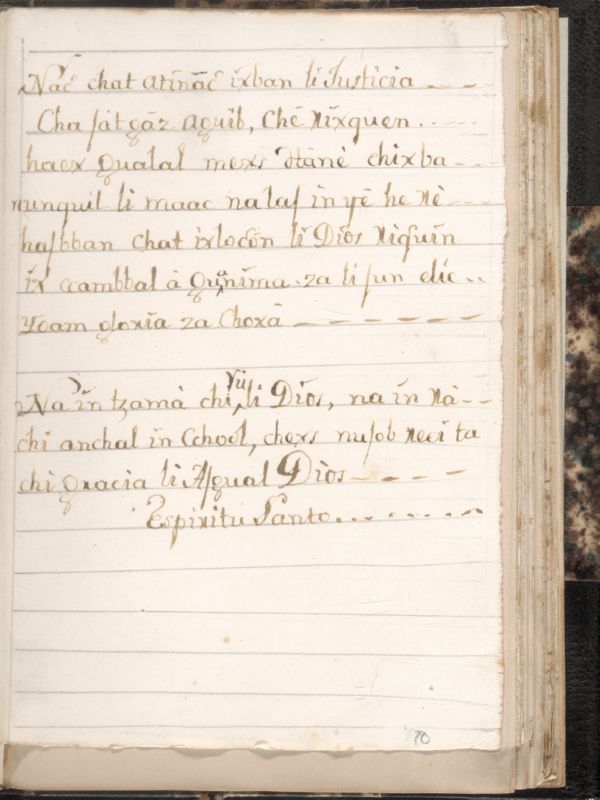 Nac̃ chat atinãc̃ ixban li Justicia
Cha ſàt gãz aguib, Chê nixquen
haex qualal mexs Atanè chixba
nunquil li maac na laſ in yê he nè
haſbban chat ixlocõn li Dios niquin
ix ccambbal à quïnima. za li ſun elic
Yoam gloria za Choxà
Na in tzamà chi ru li Dios, na in nà
chi anchal in Cchool, chexs nuſob neci ta
chi gracia li Aſgual Dios
Espiritu Santo
70